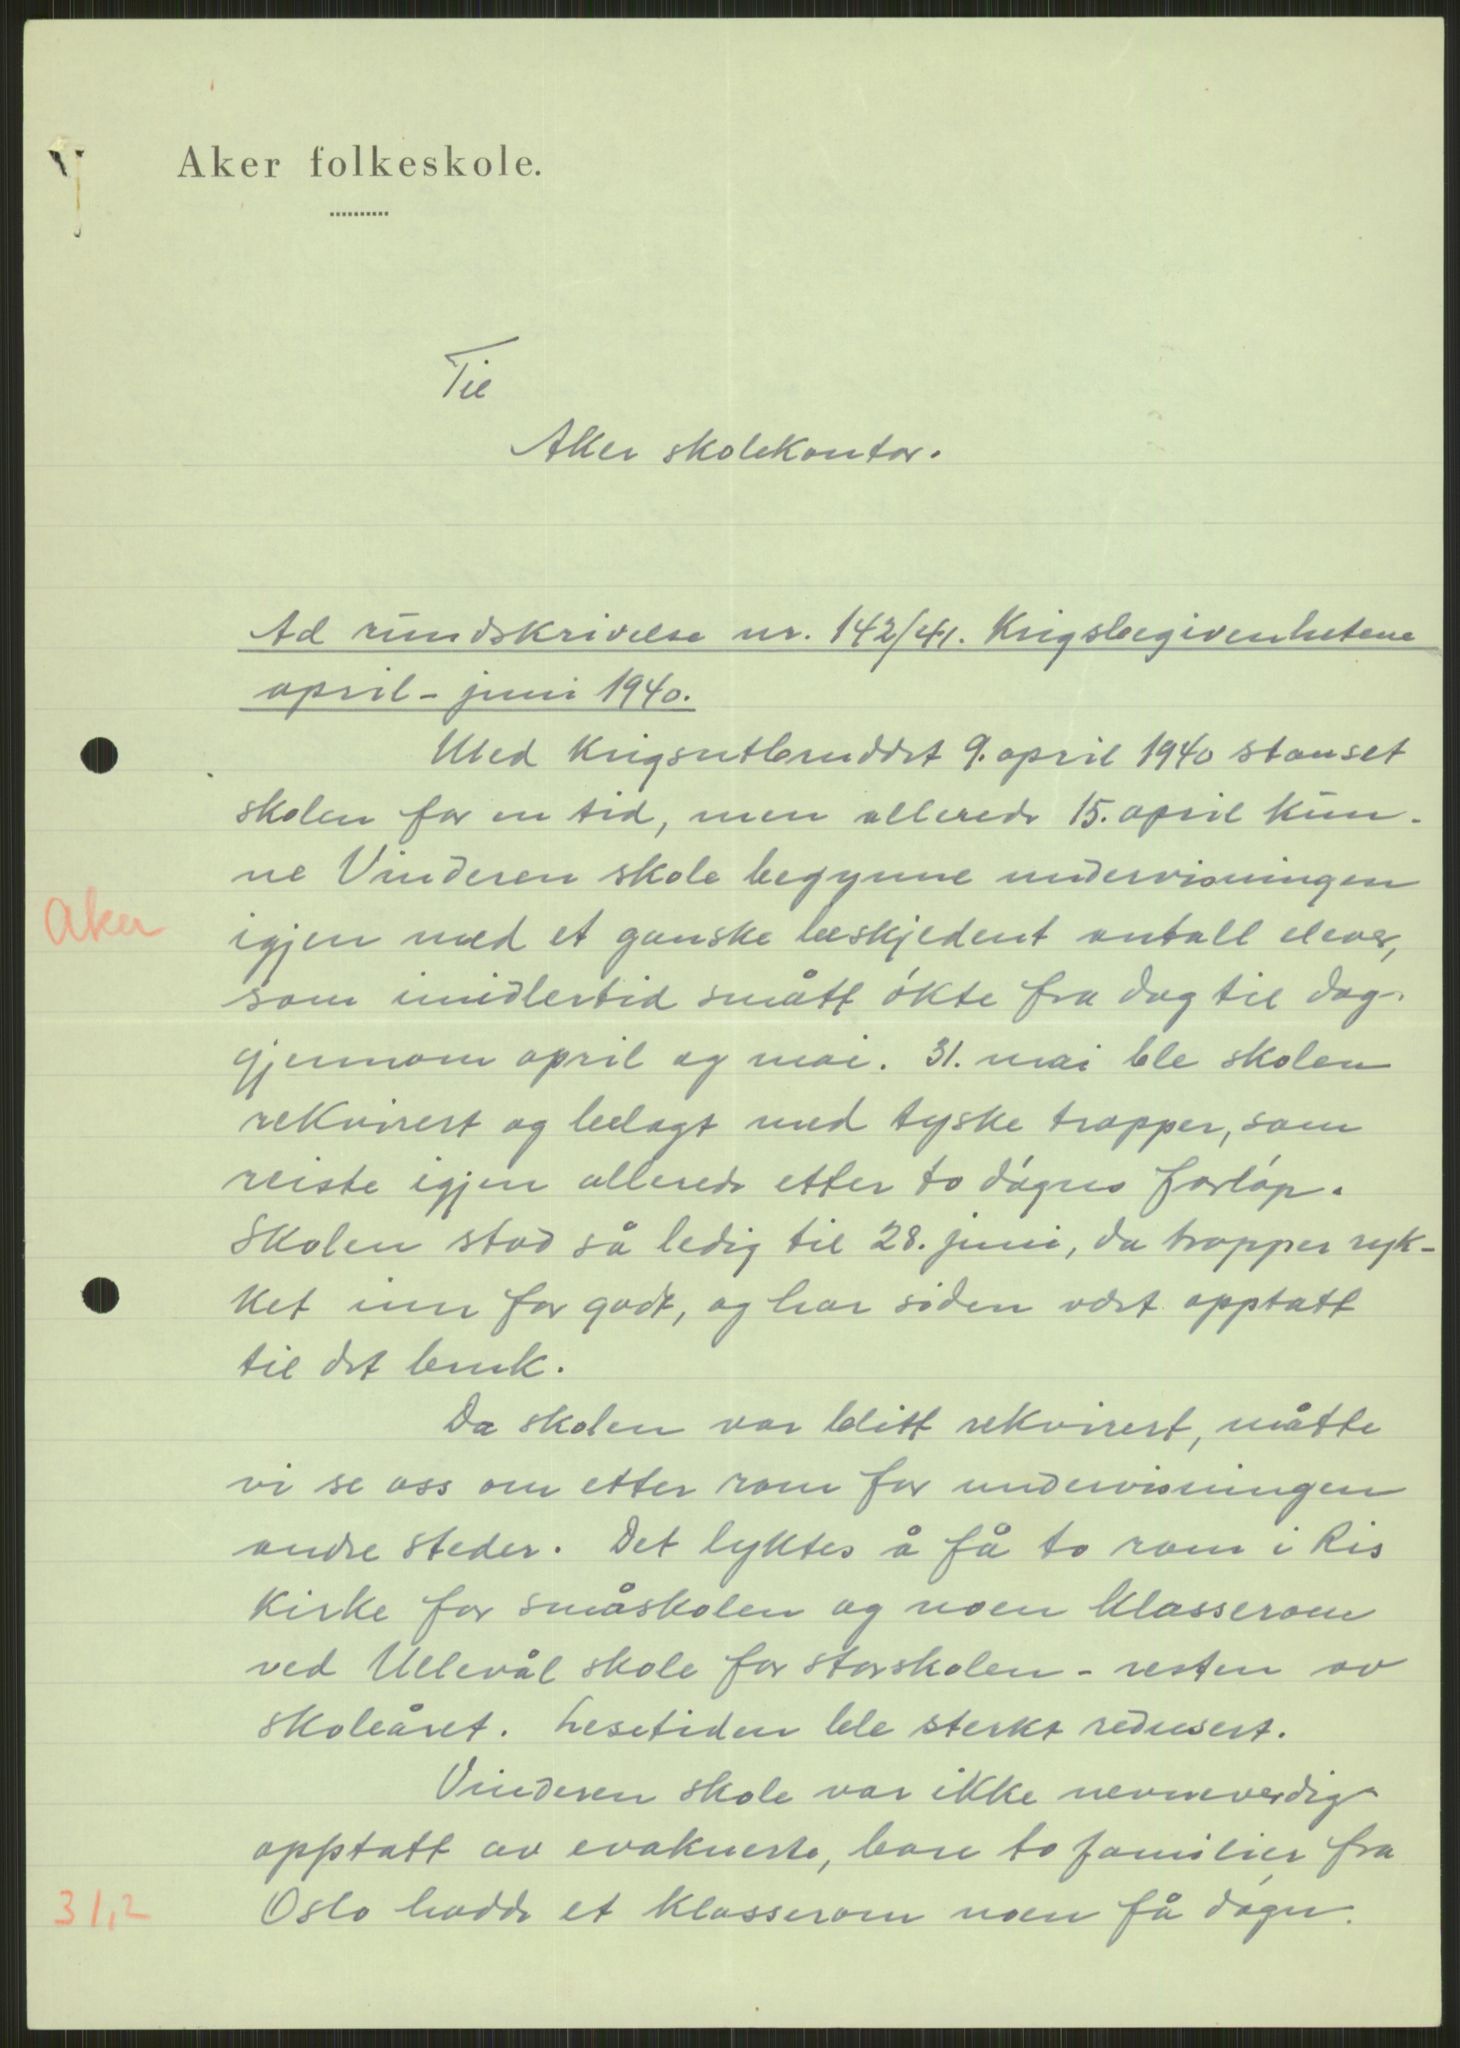 Aker folkeskole.
Til
Aker skolekontor.
Ad rundskrivelse nr. 142/41. Krigsbegivenhetene
april - juni 1940.
Med krigsutbruddet 9. april 1940 stanset
skolen for en tid, men allerede 15. april kun-
ne Vinderen skole begynne undervisningen
Aker
igjen med et ganske beskjedent antall elever,
som imidlertid smått økte fra dag til dag
gjennom april og mai. 31. mai ble skolen
rekvirert og belagt med tyske tropper, som
reiste igjen allerede etter to døgns forløp.
Skolen stod så ledig til 28. juni, da tropper ryk-
ket inn for godt, og har siden vært opptatt
til det bruk.
Da skolen var blitt rekvirert, måtte
vi se oss om etter rom for undervisningen
andre steder. Det lyktes å få to rom i Ris
kirke for småskolen og noen klasserom
ved Ullevål skole for storskolen - resten av
skoleåret. Lesetiden ble sterkt redusert.
Vinderen skole var ikke nevneverdig
opptatt av evakuerte, bare to familier fra
31,2
Oslo hadde et klasserom noen få døgn.